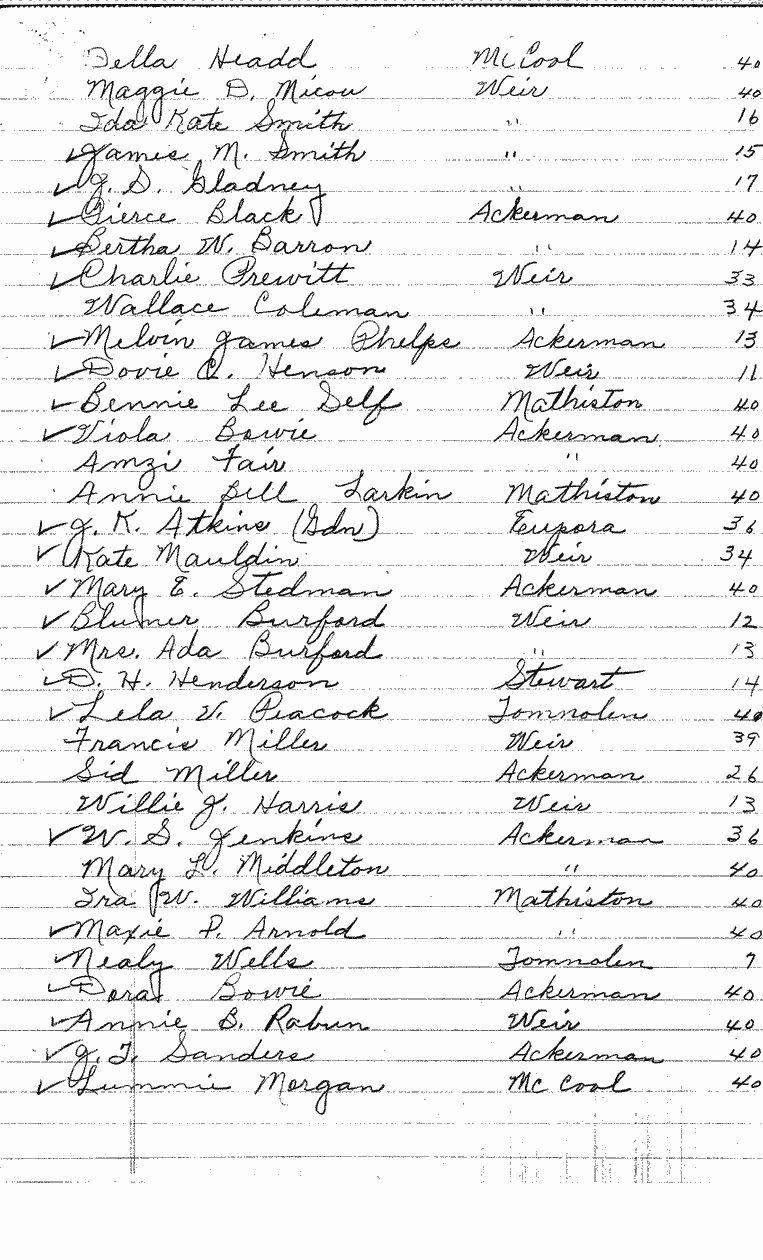 Della Headd McCool 40
Maggie D. Micou Weir 40
Ida Kate Smith " 16
✓ James M. Smith " 15
✓ J. S. Gladney " 17
✓ Pierce Black Ackerman 40
✓ Bertha W. Barron " 14
✓ Charlie Prewitt Weir 33
Wallace Coleman " 34
✓ Melvin James Phelps Ackerman 13
✓ Dovie C. Henson Weir 11
✓ Bennie Lee Self Mathiston 40
✓ Viola Bowie Ackerman 40
Amzi Fair " 40
Annie Bell Larkin Mathiston 40
✓ J. K. Atkins (Gdn) Eupora 36
✓ Kate Mauldin Weir 34
✓ Mary E. Stedman Ackerman 40
✓ Blumer Burford Weir 12
✓ Mrs. Ada Burford " 13
✓ D. H. Henderson Stewart 14
✓ Lela V. Peacock Tomnolen 40
Francis Miller Weir 39
Sid Miller Ackerman 26
Willie J. Harris Weir 13
✓ W. S. Jenkins Ackerman 36
Mary L. Middleton " 40
Ira W. Williams Mathiston 40
✓ Maxie P. Arnold " 40
✓ Nealy Wells Tomnolen 7
✓ Dora Bowie Ackerman 40
✓ Annie B. Rabun Weir 40
✓ J. T. Sanders Ackerman 40
✓ Lummie Morgan McCool 40